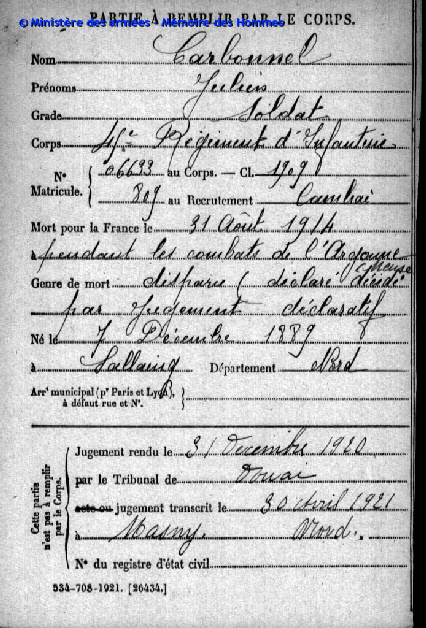 © Ministère des armées - Mémoire des Hommes
PARTIE À REMPLIR PAR LE CORPS.
Nom Carbonnel
Prénoms Julien
Grade Soldat
Corps Régiment d'Infanterie
N° Matricule. { 06633 au Corps. — Cl. 1909
809 au Recrutement Cambrai
Mort pour la France le 31 Août 1914
à pendant les combats de l'Argonne
Meuse
Genre de mort disparu (déclaré décédé
par jugement déclaratif
Né le 7 Décembre 1889
à Lallaing Département Nord
Arr' municipal (p' Paris et Lyon),
à défaut rue et N°. }
Cette partie n'est pas à remplir par le Corps.
Jugement rendu le 31 Décembre 1920
par le Tribunal de Douai
acte ou jugement transcrit le 30 Avril 1921
à Masny. Nord.
N° du registre d'état civil
534-708-1921. [26434.]